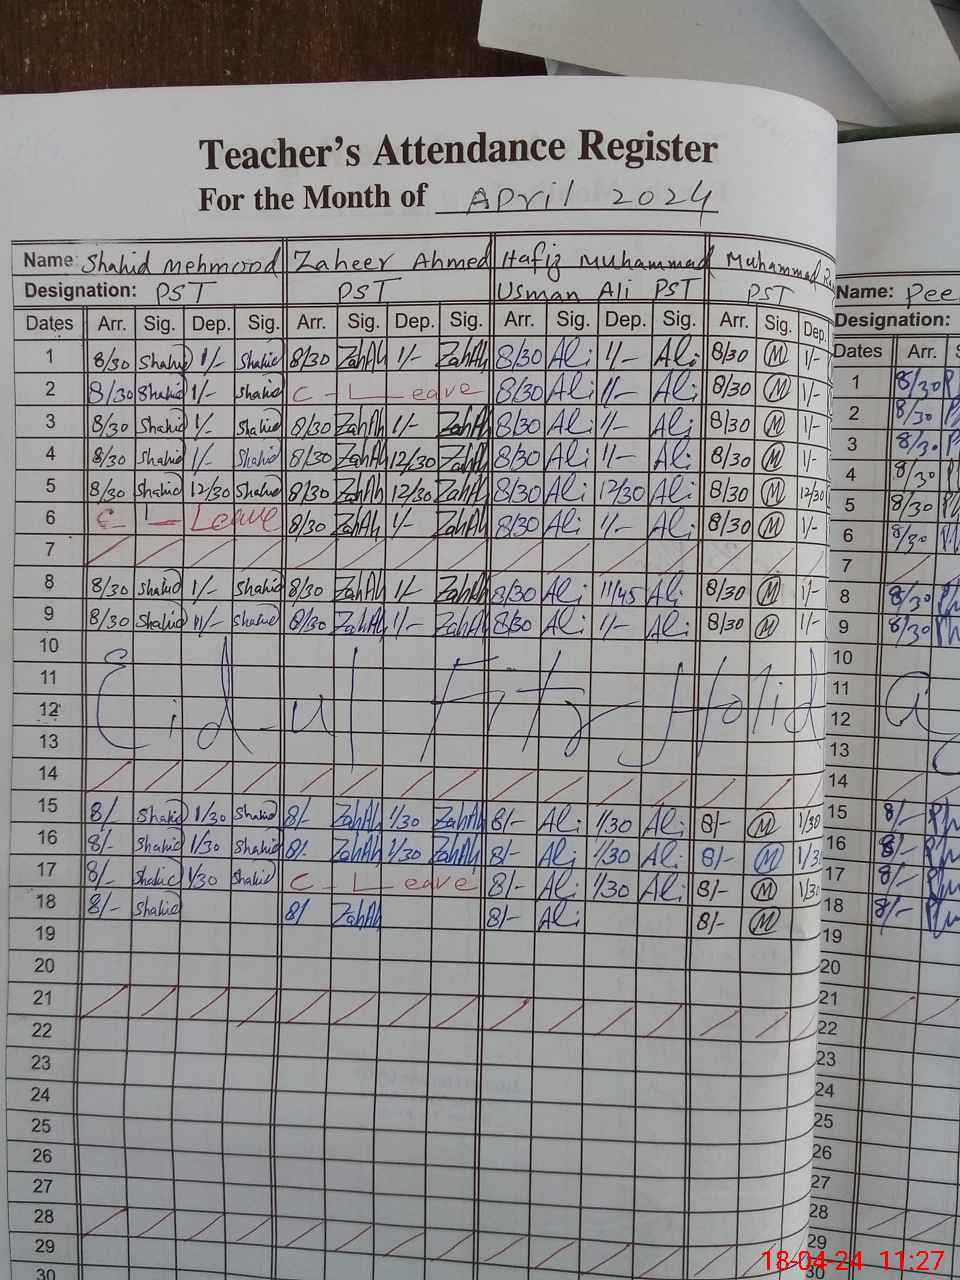 Teacher's Attendance Register
For the Month of April 2024
Name: Shahid Mehmood Zaheer Ahmed Hafiz Muhammad Muhammad
Designation: PST PST Usman Ali PST PST
Dates Arr. Sig. Dep. Sig. Arr. Sig. Dep. Sig. Arr. Sig. Dep. Sig. Arr. Sig. Dep.
1 8/30 Shahid 1/- Shahid 8/30 ZahAh 1/- ZahAh 8/30 Ali 1/- Ali 8/30 M 1/-
2 8/30 Shahid 1/- Shahid C - Leave 8/30 Ali 1/- Ali 8/30 M 1/-
3 8/30 Shahid 1/- Shahid 8/30 ZahAh 1/- ZahAh 8/30 Ali 1/- Ali 8/30 M 1/-
4 8/30 Shahid 1/- Shahid 8/30 ZahAh 12/30 ZahAh 8/30 Ali 1/- Ali 8/30 M 1/-
5 8/30 Shahid 12/30 Shahid 8/30 ZahAh 12/30 ZahAh 8/30 Ali 12/30 Ali 8/30 M 12/30
6 C - Leave 8/30 ZahAh 1/- ZahAh 8/30 Ali 1/- Ali 8/30 M 1/-
7
8 8/30 Shahid 1/- Shahid 8/30 ZahAh 1/- ZahAh 8/30 Ali 11/45 Ali 8/30 M 1/-
9 8/30 Shahid 1/- Shahid 8/30 ZahAh 1/- ZahAh 8/30 Ali 1/- Ali 8/30 M 1/-
10
11 Eid-ul Fitr Holid
12
13
14
15 8/- Shahid 1/30 Shahid 8/- ZahAh 1/30 ZahAh 8/- Ali 1/30 Ali 8/- M 1/30
16 8/- Shahid 1/30 Shahid 8/- ZahAh 1/30 ZahAh 8/- Ali 1/30 Ali 8/- M 1/3
17 8/- Shahid 1/30 Shahid C - Leave 8/- Ali 1/30 Ali 8/- M 1/30
18 8/- Shahid 8/ ZahAh 8/- Ali 8/- M
19
20
21
22
23
24
25
26
27
28
29
30
Name: Pee
Designation:
Dates Arr. S
1 8/30
2 8/30
3 8/30
4 8/30
5 8/30
6 8/30
7
8 8/30
9 8/30
10
11
12
13
14
15 8/-
16 8/-
17 8/-
18 8/-
19
20
21
22
23
24
25
26
27
28
29
30
18-04-24 11:27